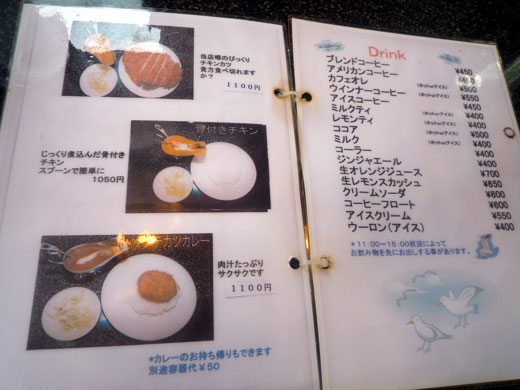 当店噂のびっくり
チキンカツ
貴方食べ切れます
か？
１１００円
骨付きチキン
じっくり煮込んだ骨付き
チキン
スプーンで簡単に
1050円
カツカレー
肉汁たっぷり
サクサクです
１１００円
*カレーのお持ち帰りもできます
別途容器代￥50
Drink
ブレンドコーヒー ¥450
アメリカンコーヒー ¥450
カフェオレ ¥500
ウインナーコーヒー ¥550
アイスコーヒー ¥450
ミルクティ ¥400
レモンティ ¥400
ココア ¥500
ミルク ¥400
コーラー ¥400
ジンジャエール ¥400
生オレンジジュース ¥700
生レモンスカッシュ ¥650
クリームソーダ ¥600
コーヒーフロート ¥600
アイスクリーム ¥550
ウーロン（アイス） ¥400
*11:00～15:00状況によって
お飲み物を先にお出しする事があります。